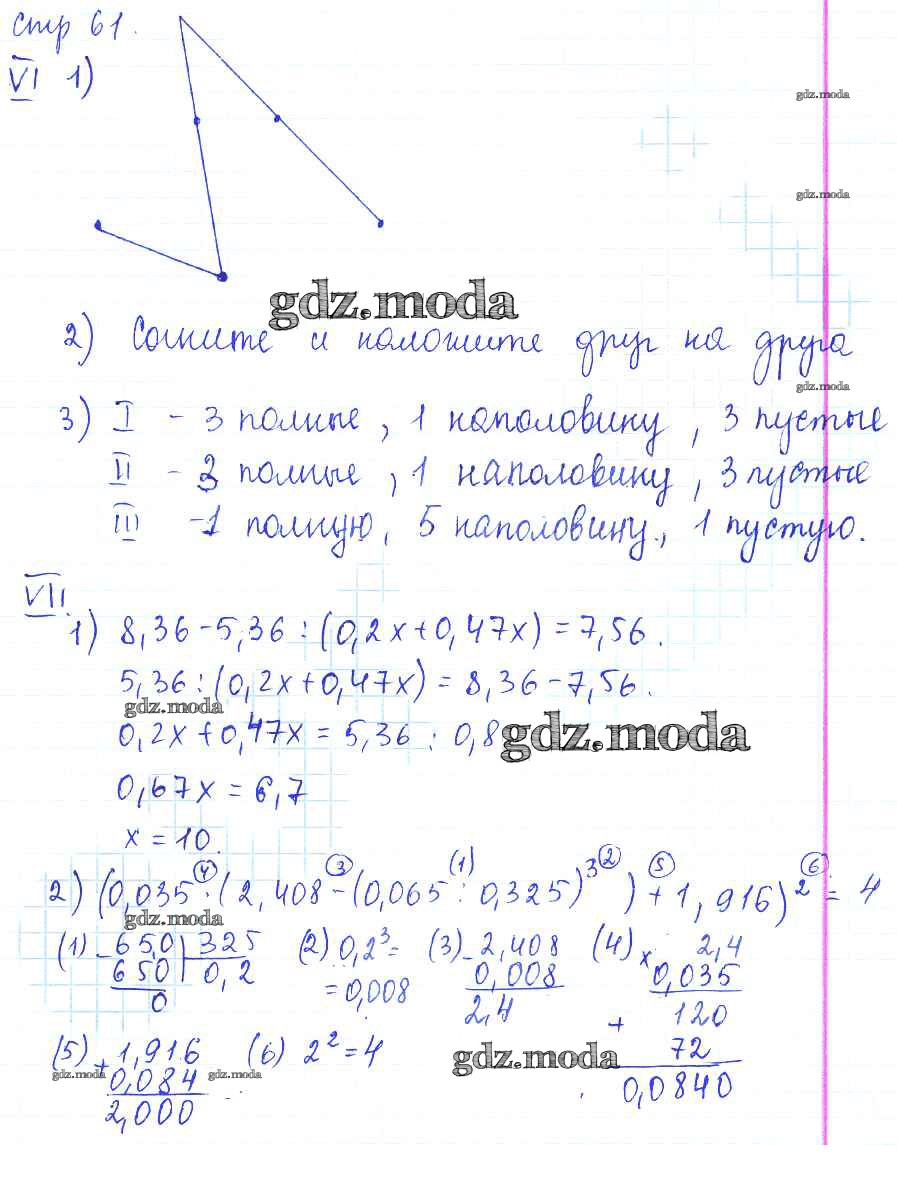 стр 61.
VI 1)
gdz.moda
gdz.moda
gdz.moda
2) Согните и наложите друг на друга
gdz.moda
3) I – 3 полные, 1 наполовину, 3 пустые
II – 3 полные, 1 наполовину, 3 пустые
III – 1 полную, 5 наполовину, 1 пустую.
VII.
1) 8,36 – 5,36 : (0,2x + 0,47x) = 7,56.
5,36 : (0,2x + 0,47x) = 8,36 – 7,56.
gdz.moda
0,2x + 0,47x = 5,36 : 0,8
gdz.moda
0,67x = 6,7
x = 10.
(4) (3) (1) (2) (5) (6)
2) (0,035 · (2,408 – (0,065 : 0,325)³) + 1,916)² = 4
gdz.moda
(1) – 650 | 325 (2) 0,2³ = (3) – 2,408 (4) × 2,4
650 | 0,2 = 0,008 0,008 0,035
0 2,4 120
+ 72
0,0840
(5) + 1,916 (6) 2² = 4
gdz.moda
0,084
gdz.moda gdz.moda
2,000